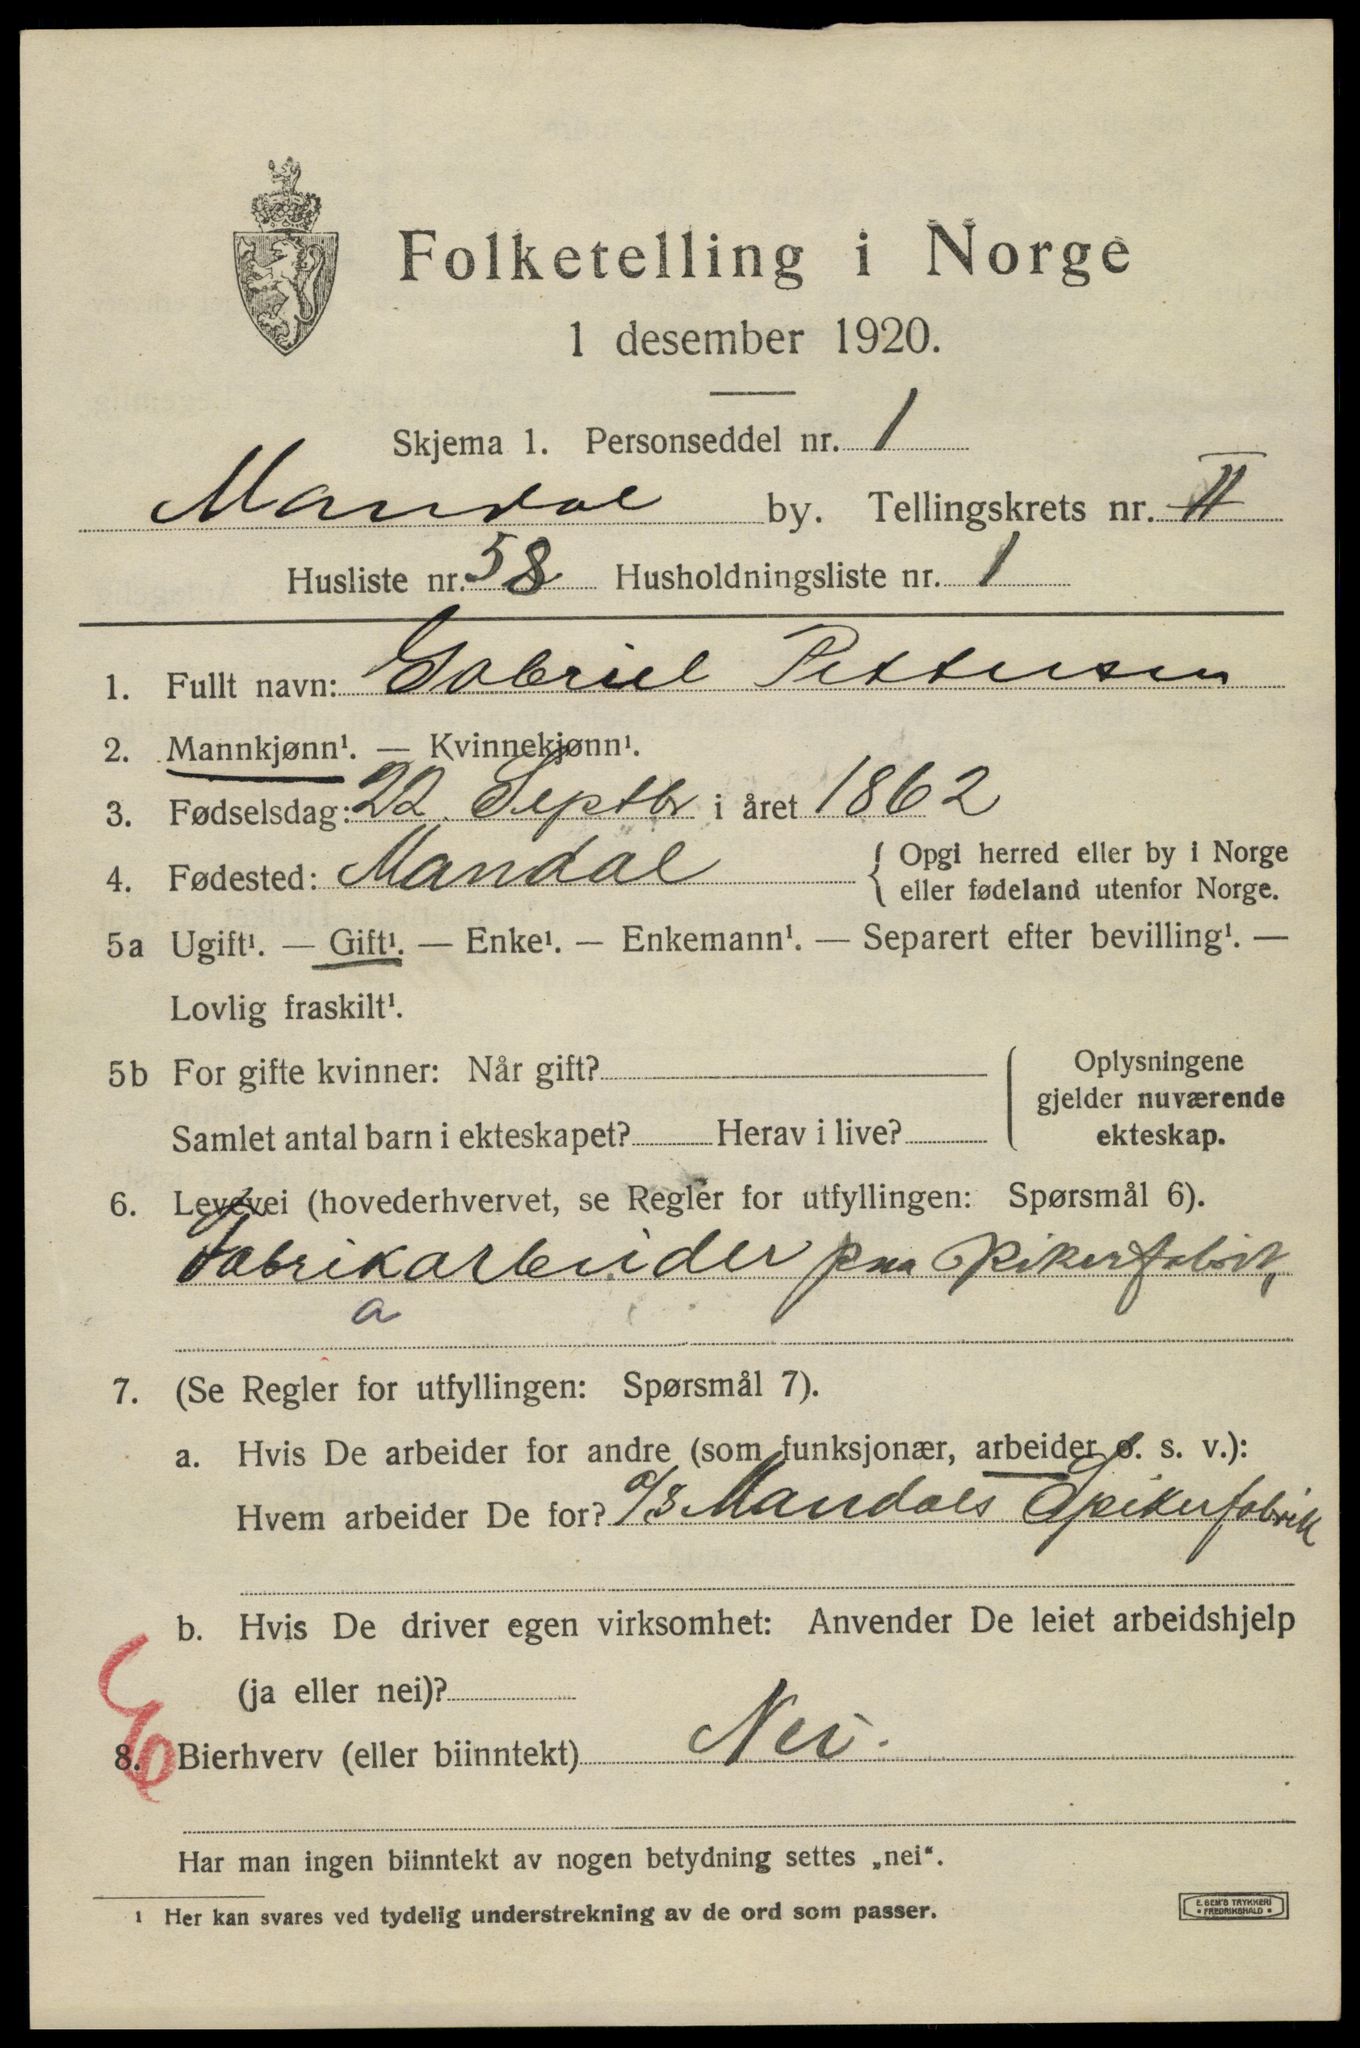 Folketelling i Norge
1 desember 1920.
Skjema 1. Personseddel nr. 1
Mandal by. Tellingskrets nr. II
Husliste nr. 58 Husholdningsliste nr. 1
1. Fullt navn: Gabriel Pettersen
2. Mannkjønn¹. — Kvinnekjønn¹.
3. Fødselsdag: 22 Septbr i året 1862
4. Fødested: Mandal { Opgi herred eller by i Norge
eller fødeland utenfor Norge.
5a Ugift¹. — Gift¹. — Enke¹. — Enkemann¹. — Separert efter bevilling¹. —
Lovlig fraskilt¹.
5b For gifte kvinner: Når gift?
Samlet antal barn i ekteskapet? Herav i live?
Oplysningene
gjelder nuværende
ekteskap.
6. Levevei (hovederhvervet, se Regler for utfyllingen: Spørsmål 6).
Fabrikarbeider paa Spikerfabrik,
a
7. (Se Regler for utfyllingen: Spørsmål 7).
a. Hvis De arbeider for andre (som funksjonær, arbeider o. s. v.):
Hvem arbeider De for? a/s Mandals Spikerfabrik
b. Hvis De driver egen virksomhet: Anvender De leiet arbeidshjelp
(ja eller nei)?
8. Bierhverv (eller biinntekt) Nei.
Har man ingen biinntekt av nogen betydning settes „nei“.
¹ Her kan svares ved tydelig understrekning av de ord som passer.
E. SEM'S TRYKKERI
• FREDRIKSHALD •